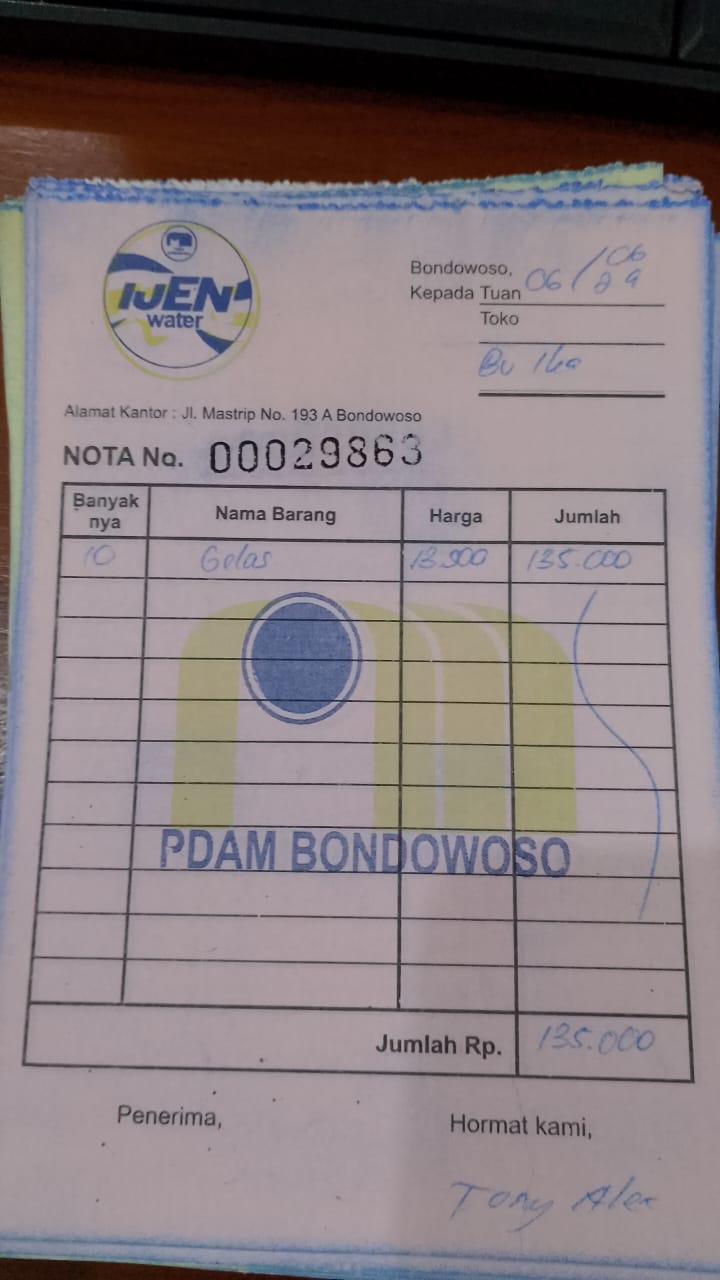 IJEN
water
Bondowoso, 06/06
Kepada Tuan
Toko
Bu Ika
Alamat Kantor : Jl. Mastrip No. 193 A Bondowoso
NOTA No. 00029863
Banyak nya Nama Barang Harga Jumlah
10 Gelas 13.500 135.000
PDAM BONDOWOSO
Jumlah Rp. 135.000
Penerima, Hormat kami,
Tony Alex